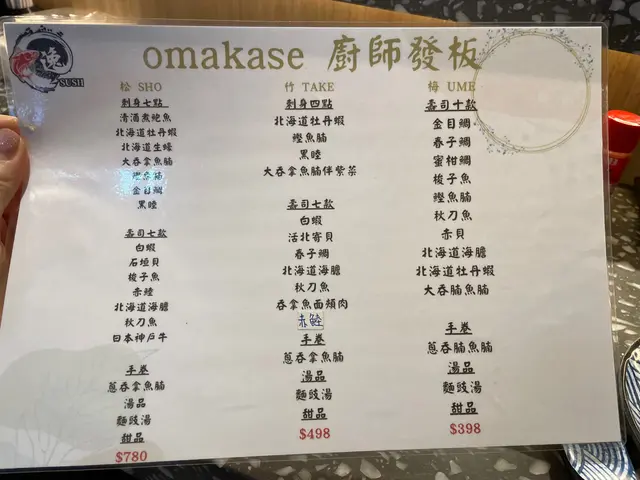 漁
SUSHI
omakase 廚師發板
松 SHO
刺身七點
清酒煮鮑魚
北海道牡丹蝦
北海道生蠔
大吞拿魚腩
金目鯛
黑睦
壽司七款
白蝦
石垣貝
梭子魚
赤𩺬
北海道海膽
秋刀魚
日本神戶牛
手卷
蔥吞拿魚腩
湯品
麵豉湯
甜品
$780
竹 TAKE
刺身四點
北海道牡丹蝦
鰹魚腩
黑睦
大吞拿魚腩伴紫菜
壽司七款
白蝦
活北寄貝
春子鯛
北海道海膽
秋刀魚
吞拿魚面頰肉
手卷
蔥吞拿魚腩
湯品
麵豉湯
甜品
$498
梅 UME
壽司十款
金目鯛
春子鯛
蜜柑鯛
梭子魚
鰹魚腩
秋刀魚
赤貝
北海道海膽
北海道牡丹蝦
大吞腩魚腩
手卷
蔥吞腩魚腩
湯品
麵豉湯
甜品
$398